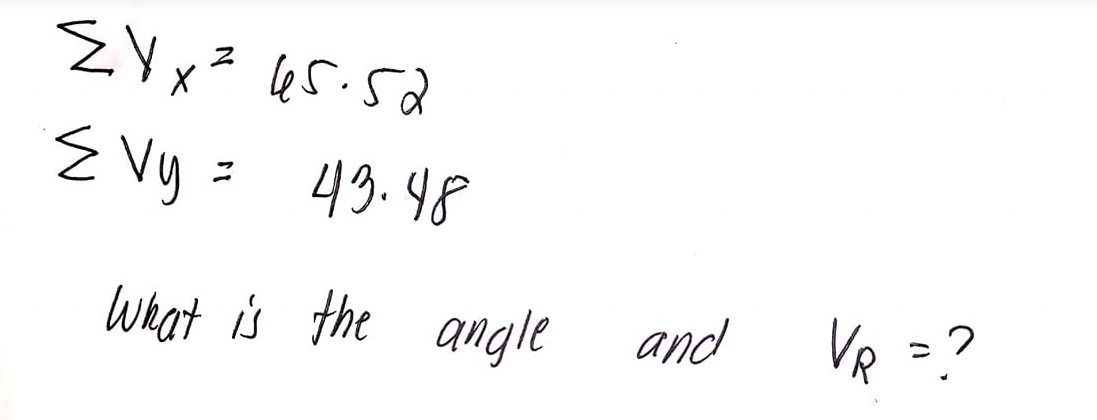 ΣVx = 65.52
ΣVy = 43.48
What is the angle and VR = ?